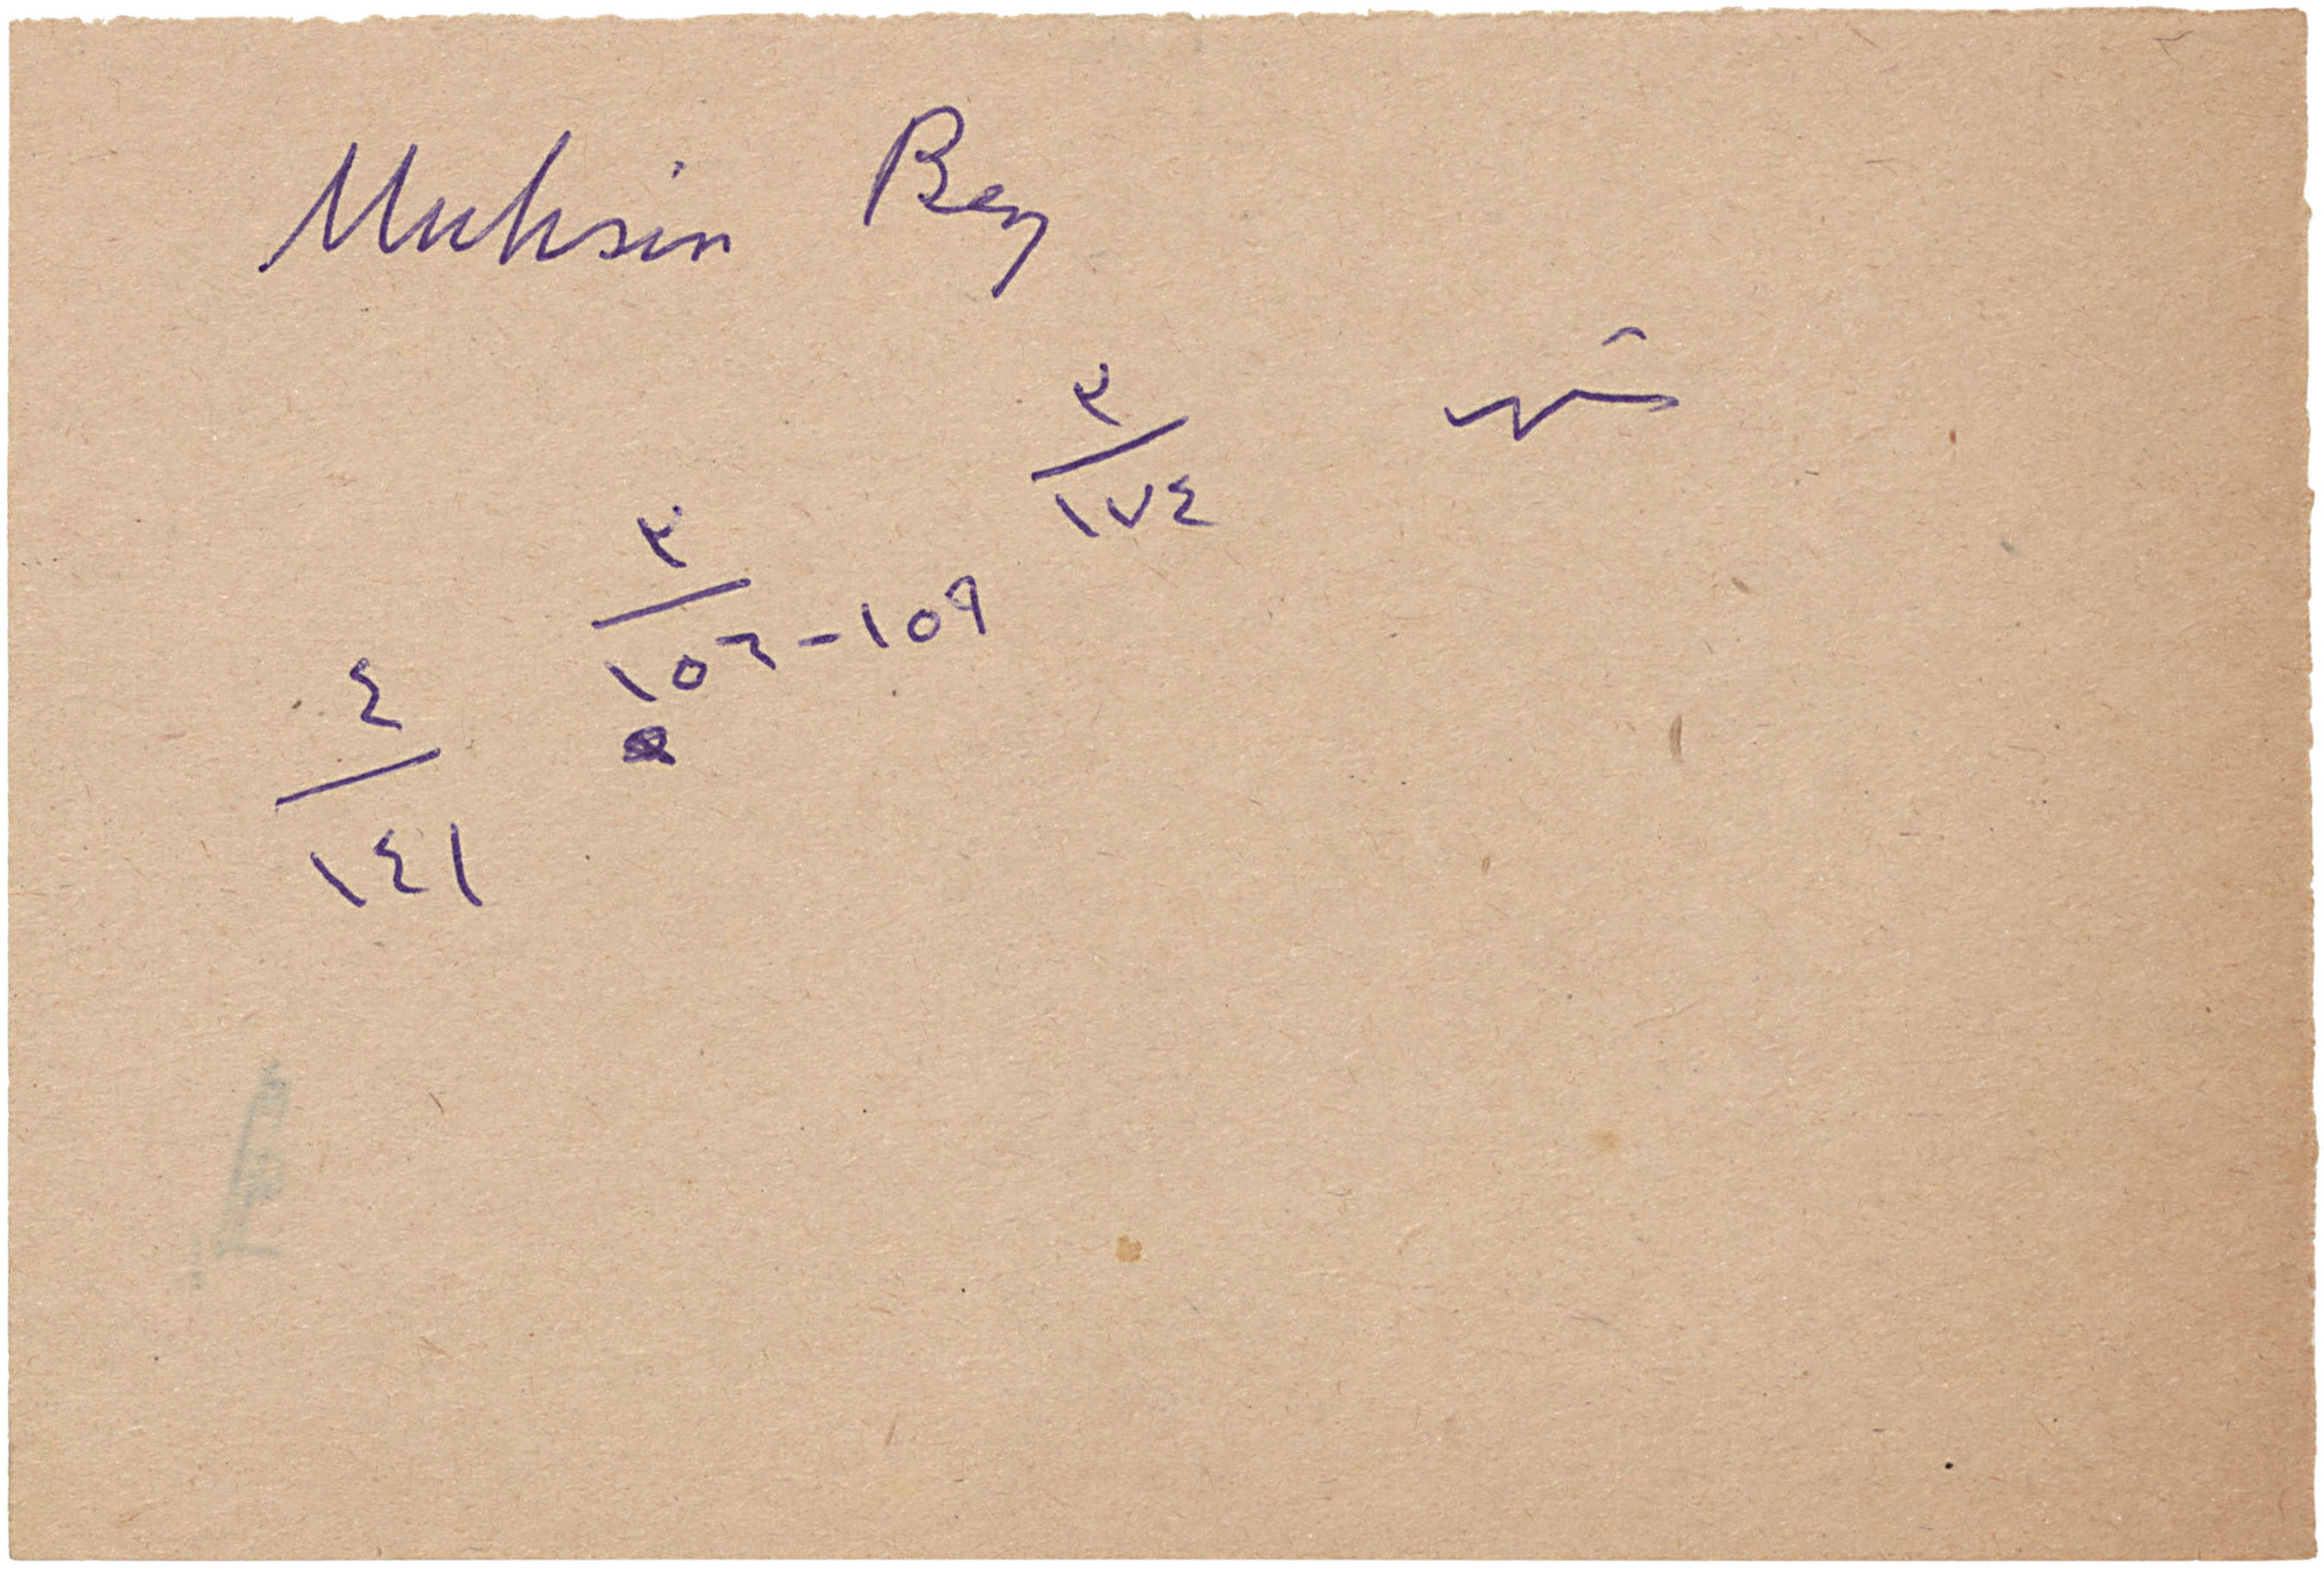 Muhsin Bey
٢
١٧٤
٣
١٥٦-١٥٩
٤
١٤١